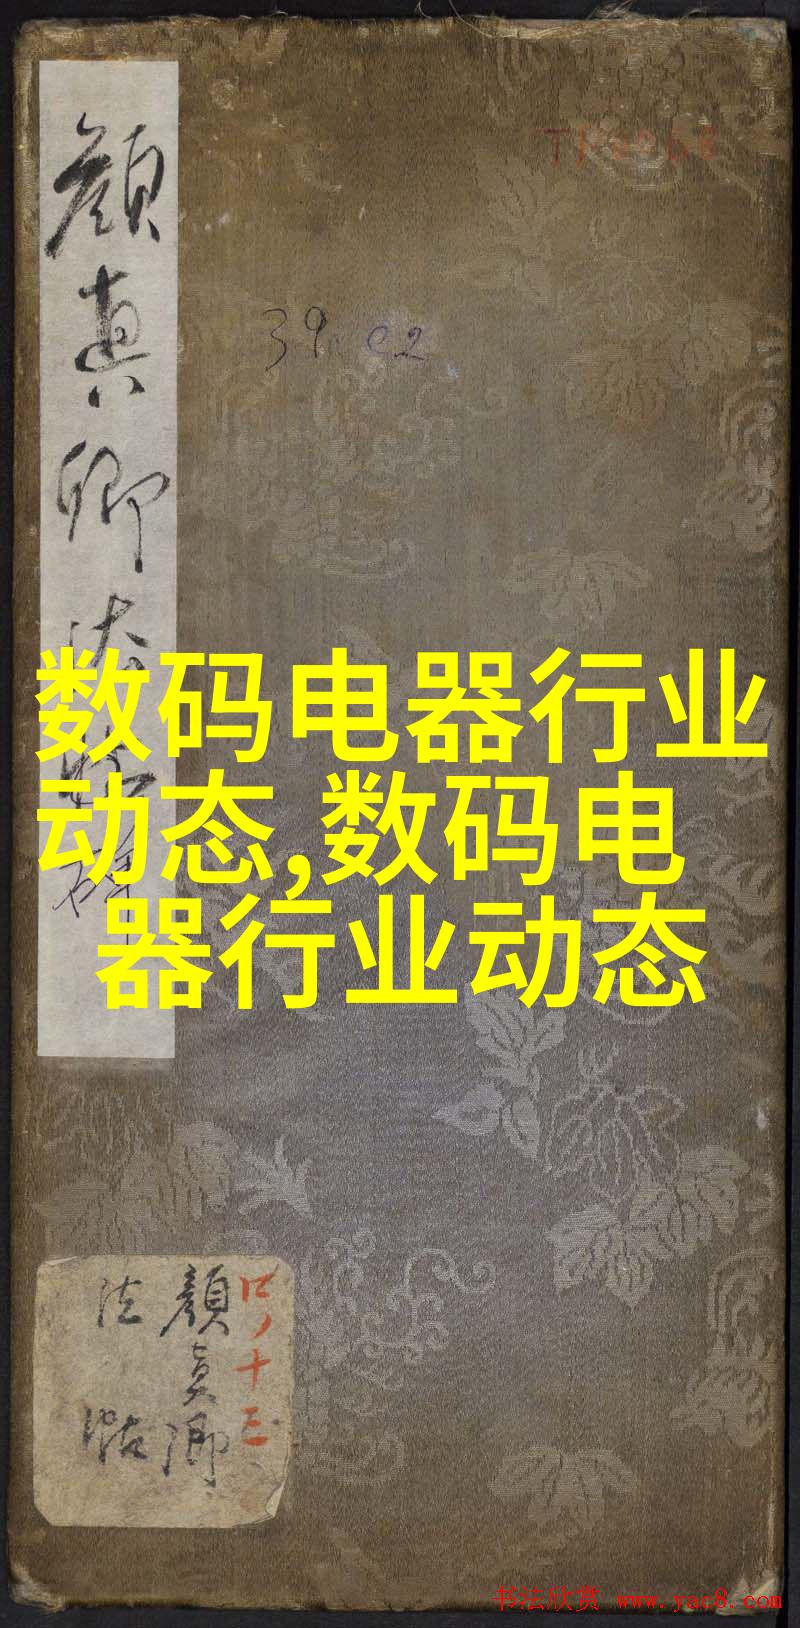 顔真卿法帖
TP2068
39.C2
数码电器行业
动态,数码电
器行业动态
口ノ十三
顔真卿
法帖
书法欣赏 www.yac8.com